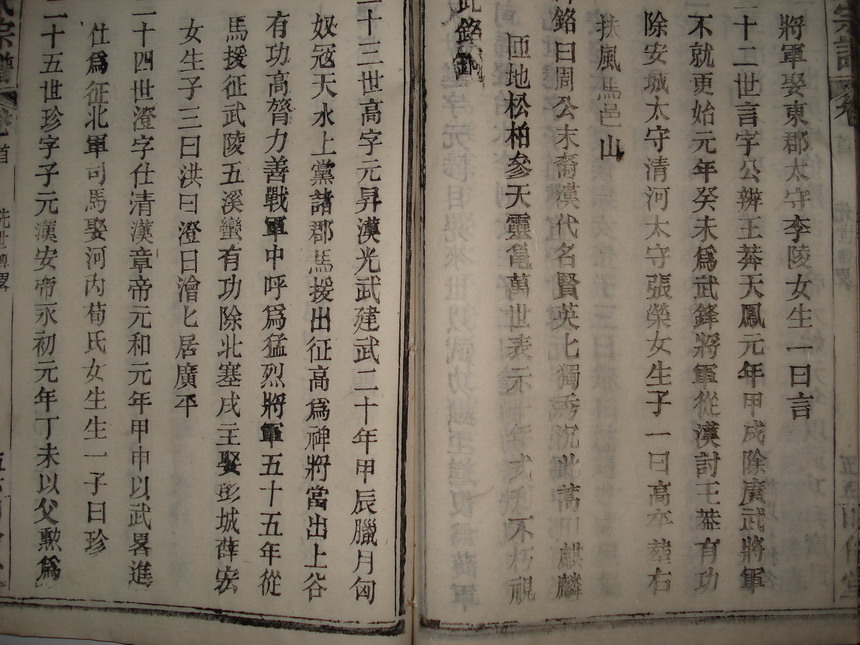 宗譜 卷
將軍娶東郡太守李陵女生一曰言
十二世言字公辨王莽天鳳元年甲戌除廣武將軍
不就更始元年癸未爲武鋒將軍從漢討王莽有功
除安城太守清河太守張榮女生子一曰高卒葬右
扶風馬邑山
銘曰周公末裔漢代名賢英匕獨秀
麒麟
匝地松柏參天靈龜萬世表示
不朽視
此銘鐫
二十三世高字元昇漢光武建武二十年甲辰臘月匈
奴寇天水上黨諸郡馬援出征高爲裨將當出上谷
有功高膂力善戰軍中呼爲猛烈將軍五十五年從
馬援征武陵五溪蠻有功除北塞戌主娶彭城薛宏
女生子三曰洪曰澄曰澮匕居廣平
二十四世澄字仕清漢章帝元和元年甲申以武畧進
仕爲征北軍司馬娶河內荀氏女生生一子曰珍
二十五世珍字子元漢安帝永初元年丁未以父勲爲
氏宗譜 卷首 先世